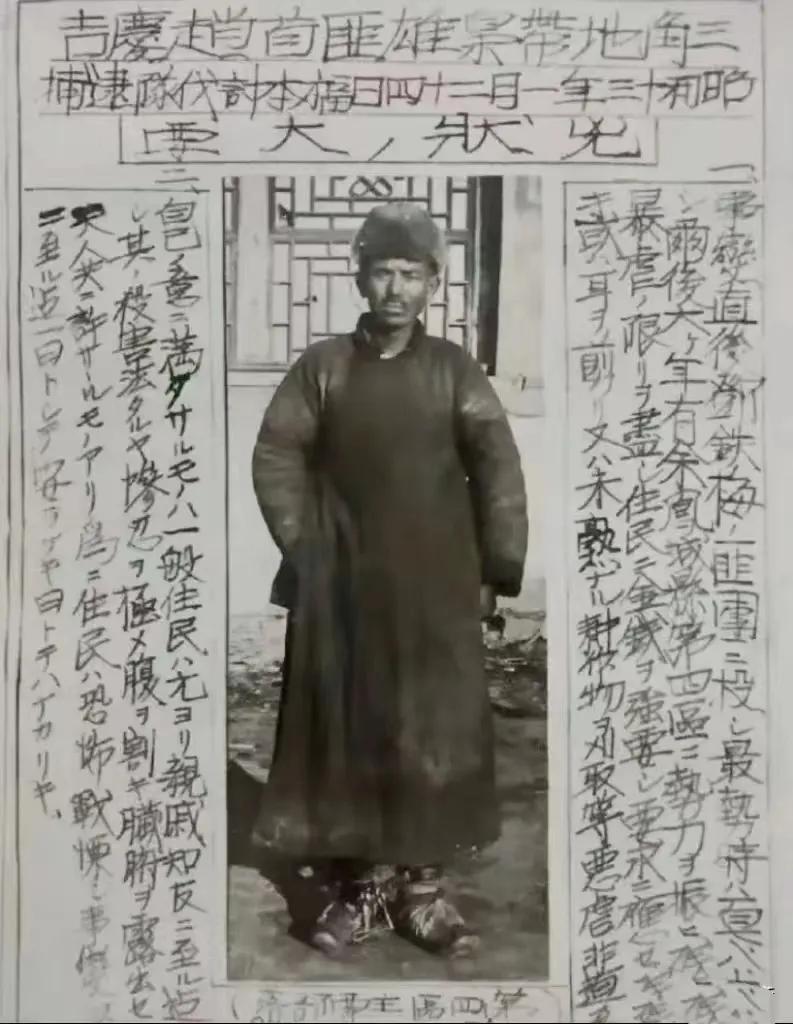 三角地帶梟雄匪首趙慶吉
昭和十三年一月二十四日福本討伐隊逮捕
兇狀ノ大要
一、事變直後鄧鉄梅ノ匪團ニ投シ最勢ノ時ハ
シ爾後六ヶ年有余鳳城縣第四區ニ勢力ヲ振ヒ
暴虐ノ限リヲ盡シ住民ニ金錢ヲ強要シ要求ニ
キ或ハ耳ヲ剪リ又ハ未熟ナル耕作物ヲ刈取等悪虐非道
二、自己ノ意ニ満タサルモノハ一般住民ハ尤ヨリ親戚知友ニ至ル迄
シ其ノ殺害法タルヤ惨忍ヲ極メ腹ヲ割キ臓腑ヲ露出セ
天人共ニ許サルモノアリ為ニ住民ハ恐怖戰慄シ事變
ニ至ル迄一日トシテ安ラケキ日トテハナカリキ、
第四區